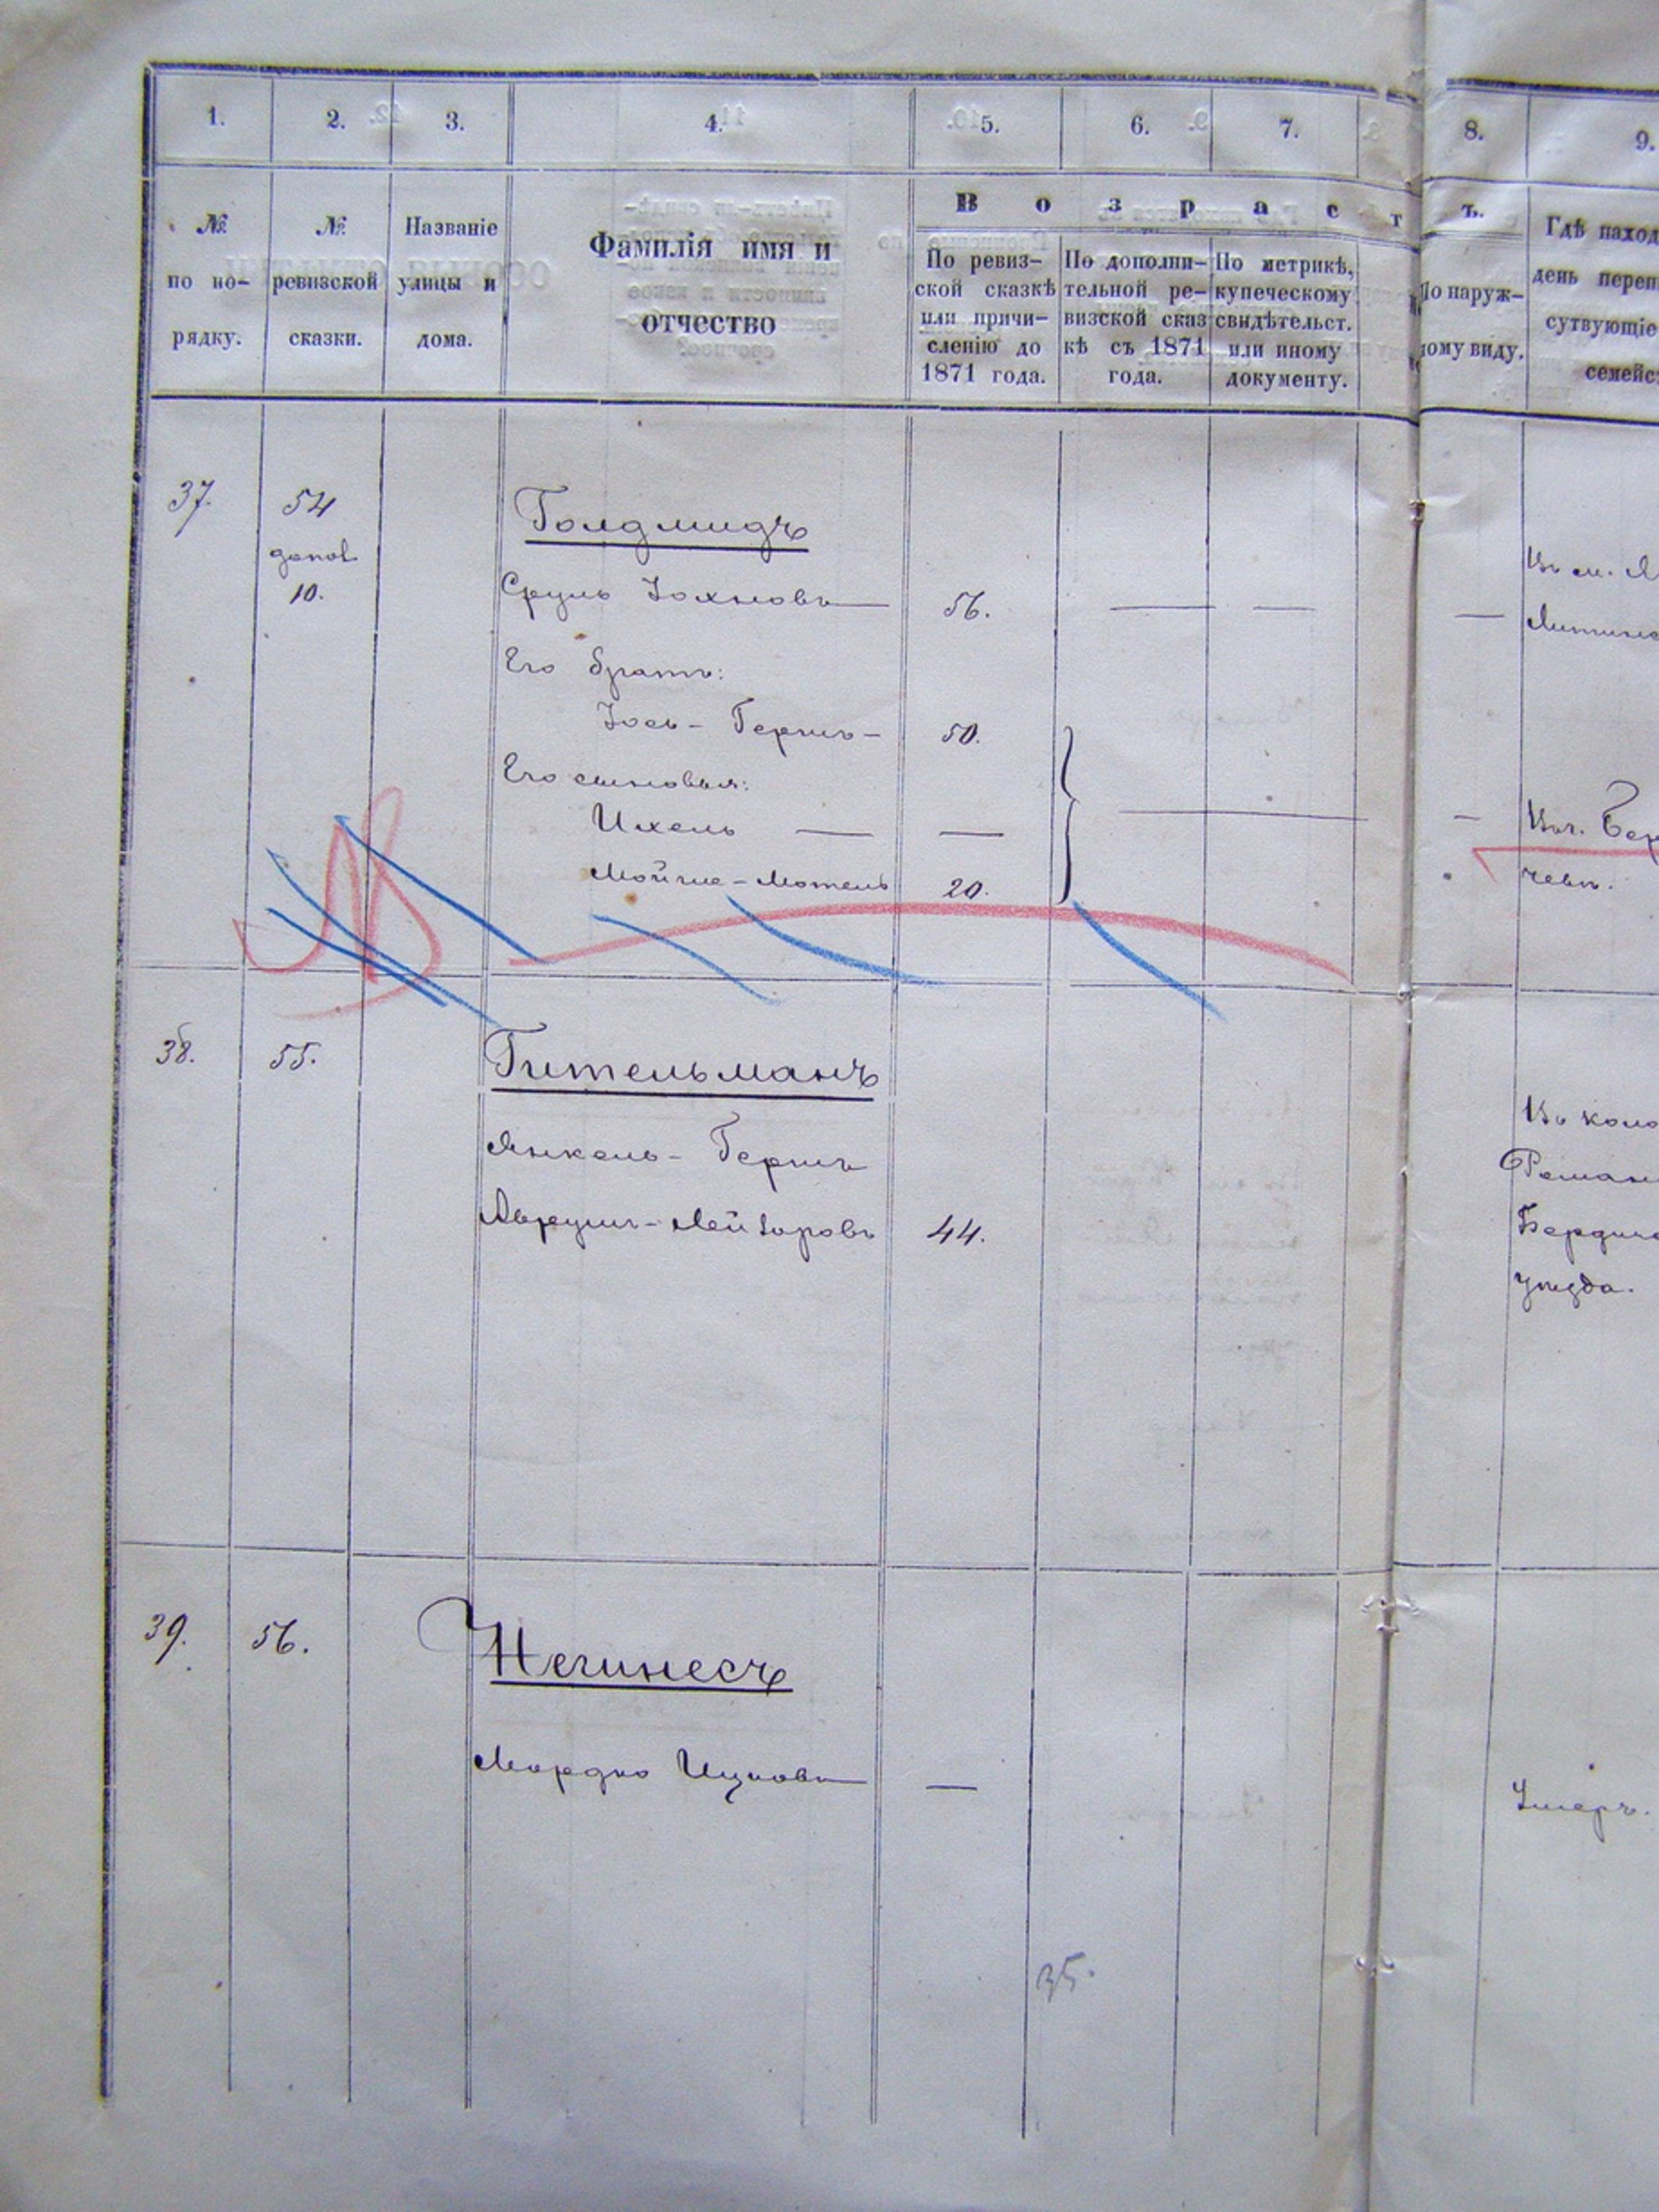 1. 2. 3. 4. 5. 6. 7. 8. 9.
№ по порядку.
№ ревизской сказки.
Названіе улицы и дома.
Фамилія имя и отчество
Возрастъ.
По ревизской сказкѣ или причисленію до 1871 года.
По дополнительной ревизской сказкѣ съ 1871 года.
По метрикѣ, купеческому свидѣтельст. или иному документу.
По наружному виду.
Гдѣ наход
день переп
сутвующіе
семейс
37. 54 Голдмидъ
10.
Сруль Іохновъ — 56. — — —
Его братъ:
Іось-Гершъ- 50.
Его сыновья:
Ихель — —
Мойше-Мотель 20.
чевѣ.
38. 55. Гительманъ
Янкель-Гершъ
Аврумъ-Лейзоровъ 44.
Въ коло
Роман
Бердиче
уѣзда.
39. 56. Негинесъ
Мордко Ицковъ — —
Умеръ.
35.